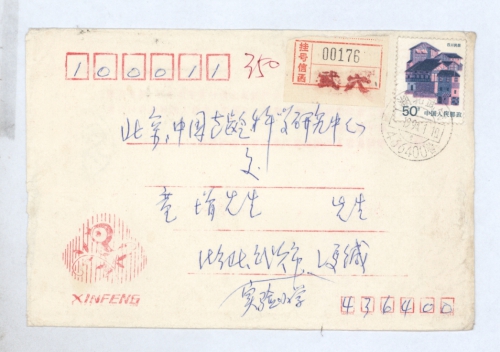 100011 350
挂号信函
00176
50分 中国人民邮政
北京,中国老龄科学研究中心
交
先生 先生
湖北
实验小学
XINFENG
436400